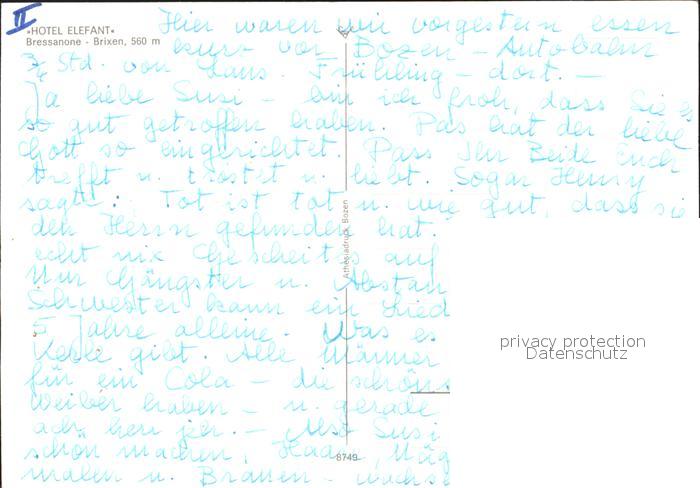 II
•HOTEL ELEFANT•
Bressanone - Brixen, 560 m
Hier waren wir vorgestern essen
kurz vor Bozen - Autobahn
3/4 Std. von Lans. Frühling - dort. -
Ja liebe Susi - bin ich froh, dass Sie es
so gut getroffen haben. Das hat der liebe
Gott so eingerichtet. Dass Ihr Beide Euch
trefft u. tröstet u. liebt. Sogar Henry
sagt: Tot ist tot u. wie gut, dass sie
den Herrn gefunden hat.
echt nix Gescheites auf
Nur Gängster u. Abstau
Schwester kann ein Lied
5 Jahre alleine. Was es
Kerle gibt. Alle Männer
für ein Cola - die schöns
Weiber haben - u. gerade
ach herrjeh. - Also Susi
schön machen, Haar, Näg
malen u. Brauen - wachs
Athesiadruck Bozen
8749
privacy protection
Datenschutz